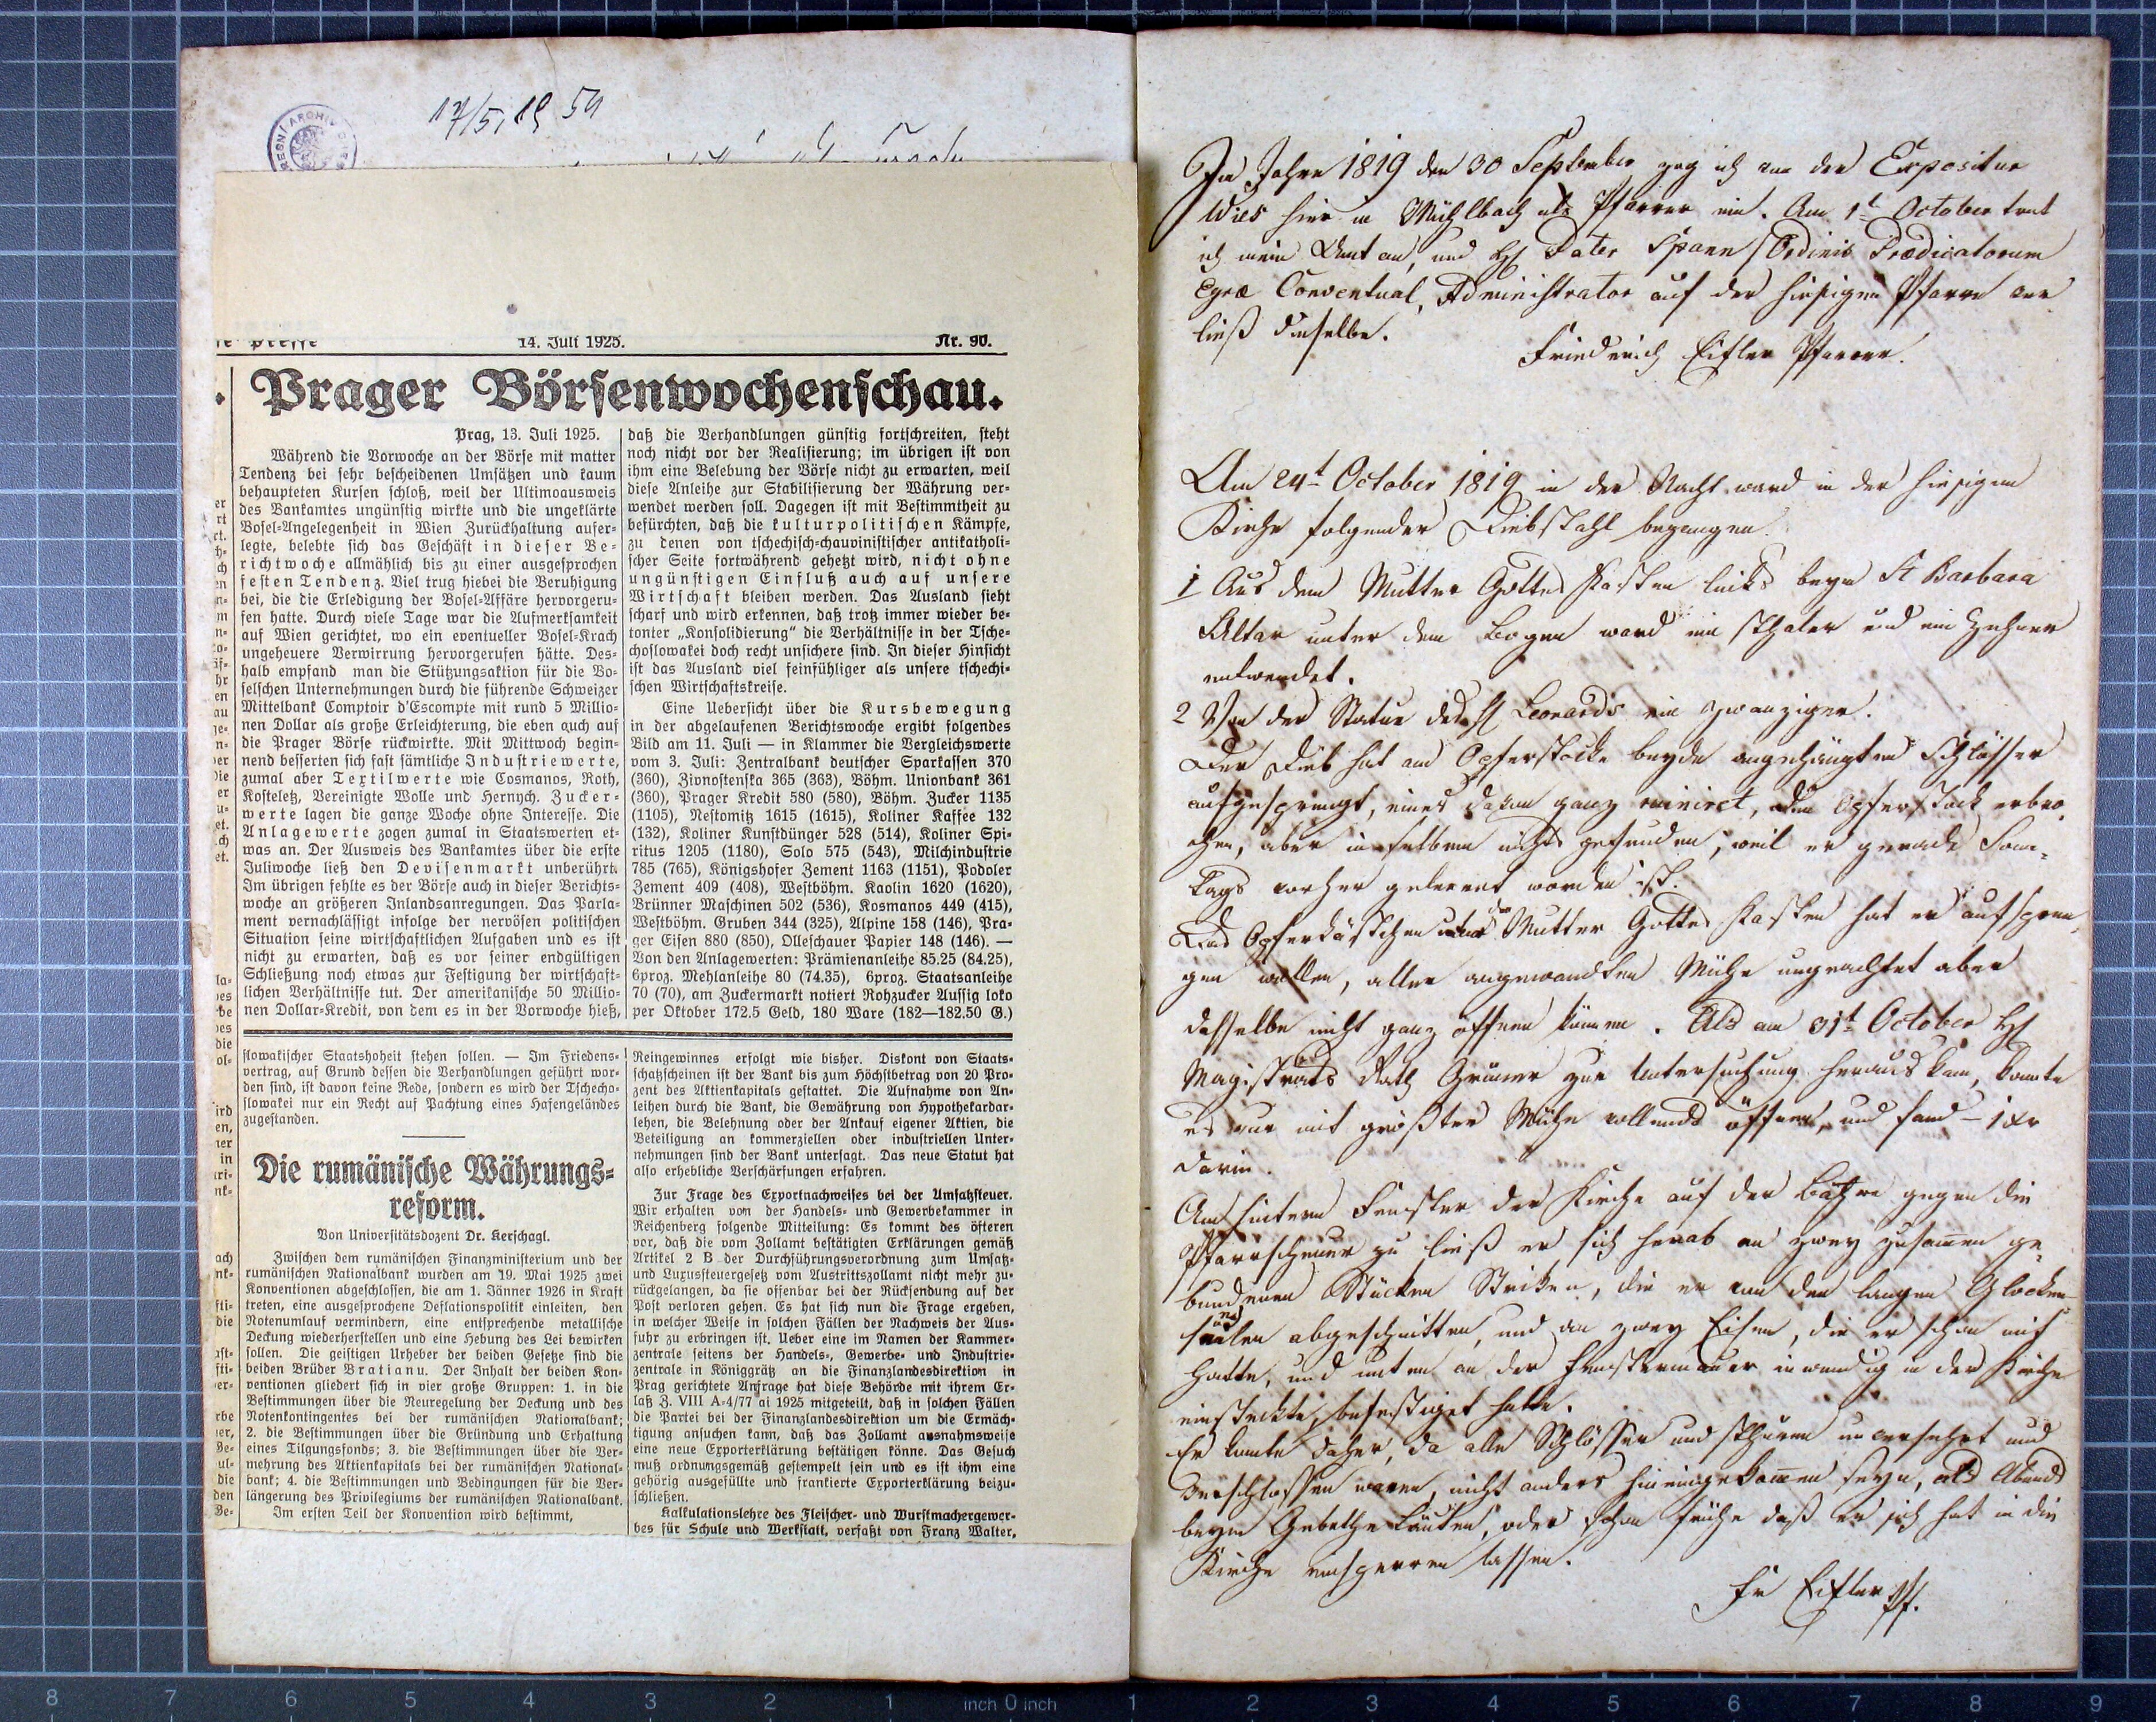 17/5, 19 59
RESNÍ ARCHIV
14. Juli 1925.
Nr. 90.
Prager Börsenwochenschau.
Prag, 13. Juli 1925.
Während die Vorwoche an der Börse mit matter
Tendenz bei sehr bescheidenen Umsätzen und kaum
behaupteten Kursen schloß, weil der Ultimoausweis
des Bankamtes ungünstig wirkte und die ungeklärte
Bosel-Angelegenheit in Wien Zurückhaltung aufer-
legte, belebte sich das Geschäft in dieser Be-
richtwoche allmählich bis zu einer ausgesprochen
festen Tendenz. Viel trug hiebei die Beruhigung
bei, die die Erledigung der Bosel-Affäre hervorgeru-
fen hatte. Durch viele Tage war die Aufmerksamkeit
auf Wien gerichtet, wo ein eventueller Bosel-Krach
ungeheuere Verwirrung hervorgerufen hätte. Des-
halb empfand man die Stützungsaktion für die Bo-
selschen Unternehmungen durch die führende Schweizer
Mittelbank Comptoir d'Escompte mit rund 5 Millio-
nen Dollar als große Erleichterung, die eben auch auf
die Prager Börse rückwirkte. Mit Mittwoch begin-
nend besserten sich fast sämtliche Industriewerte,
zumal aber Textilwerte wie Cosmanos, Roth,
Kosteletz, Vereinigte Wolle und Hernych. Zucker-
werte lagen die ganze Woche ohne Interesse. Die
Anlagewerte zogen zumal in Staatswerten et-
was an. Der Ausweis des Bankamtes über die erste
Juliwoche ließ den Devisenmarkt unberührt.
Im übrigen fehlte es der Börse auch in dieser Berichts-
woche an größeren Inlandsanregungen. Das Parla-
ment vernachlässigt infolge der nervösen politischen
Situation seine wirtschaftlichen Aufgaben und es ist
nicht zu erwarten, daß es vor seiner endgültigen
Schließung noch etwas zur Festigung der wirtschaft-
lichen Verhältnisse tut. Der amerikanische 50 Millio-
nen Dollar-Kredit, von dem es in der Vorwoche hieß,
daß die Verhandlungen günstig fortschreiten, steht
noch nicht vor der Realisierung; im übrigen ist von
ihm eine Belebung der Börse nicht zu erwarten, weil
diese Anleihe zur Stabilisierung der Währung ver-
wendet werden soll. Dagegen ist mit Bestimmtheit zu
befürchten, daß die kulturpolitischen Kämpfe,
zu denen von tschechisch-chauvinistischer antikatholi-
scher Seite fortwährend gehetzt wird, nicht ohne
ungünstigen Einfluß auch auf unsere
Wirtschaft bleiben werden. Das Ausland sieht
scharf und wird erkennen, daß trotz immer wieder be-
tonter „Konsolidierung" die Verhältnisse in der Tsche-
choslowakei doch recht unsichere sind. In dieser Hinsicht
ist das Ausland viel feinfühliger als unsere tschechi-
schen Wirtschaftskreise.
Eine Uebersicht über die Kursbewegung
in der abgelaufenen Berichtswoche ergibt folgendes
Bild am 11. Juli — in Klammer die Vergleichswerte
vom 3. Juli: Zentralbank deutscher Sparkassen 370
(360), Zivnostenska 365 (363), Böhm. Unionbank 361
(360), Prager Kredit 580 (580), Böhm. Zucker 1135
(1105), Nestomitz 1615 (1615), Koliner Kaffee 132
(132), Koliner Kunstdünger 528 (514), Koliner Spi-
ritus 1205 (1180), Solo 575 (543), Milchindustrie
785 (765), Königshofer Zement 1163 (1151), Podoler
Zement 409 (408), Westböhm. Kaolin 1620 (1620),
Brünner Maschinen 502 (536), Kosmanos 449 (415),
Westböhm. Gruben 344 (325), Alpine 158 (146), Pra-
ger Eisen 880 (850), Olleschauer Papier 148 (146). —
Von den Anlagewerten: Prämienanleihe 85.25 (84.25),
6proz. Mehlanleihe 80 (74.35), 6proz. Staatsanleihe
70 (70), am Zuckermarkt notiert Rohzucker Aussig loko
per Oktober 172.5 Geld, 180 Ware (182—182.50 G.)
slowakischer Staatshoheit stehen sollen. — Im Friedens-
vertrag, auf Grund dessen die Verhandlungen geführt wor-
den sind, ist davon keine Rede, sondern es wird der Tschecho-
slowakei nur ein Recht auf Pachtung eines Hafengeländes
zugestanden.
Die rumänische Währungs-
reform.
Von Universitätsdozent Dr. Kerschagl.
Zwischen dem rumänischen Finanzministerium und der
rumänischen Nationalbank wurden am 19. Mai 1925 zwei
Konventionen abgeschlossen, die am 1. Jänner 1926 in Kraft
treten, eine ausgesprochene Deflationspolitik einleiten, den
Notenumlauf vermindern, eine entsprechende metallische
Deckung wiederherstellen und eine Hebung des Lei bewirken
sollen. Die geistigen Urheber der beiden Gesetze sind die
beiden Brüder Bratianu. Der Inhalt der beiden Kon-
ventionen gliedert sich in vier große Gruppen: 1. in die
Bestimmungen über die Neuregelung der Deckung und des
Notenkontingentes bei der rumänischen Nationalbank;
2. die Bestimmungen über die Gründung und Erhaltung
eines Tilgungsfonds; 3. die Bestimmungen über die Ver-
mehrung des Aktienkapitals bei der rumänischen National-
bank; 4. die Bestimmungen und Bedingungen für die Ver-
längerung des Privilegiums der rumänischen Nationalbank.
Im ersten Teil der Konvention wird bestimmt,
Reingewinnes erfolgt wie bisher. Diskont von Staats-
schatzscheinen ist der Bank bis zum Höchstbetrag von 20 Pro-
zent des Aktienkapitals gestattet. Die Aufnahme von An-
leihen durch die Bank, die Gewährung von Hypothekardar-
lehen, die Belehnung oder der Ankauf eigener Aktien, die
Beteiligung an kommerziellen oder industriellen Unter-
nehmungen sind der Bank untersagt. Das neue Statut hat
also erhebliche Verschärfungen erfahren.
Zur Frage des Exportnachweises bei der Umsatzsteuer.
Wir erhalten von der Handels- und Gewerbekammer in
Reichenberg folgende Mitteilung: Es kommt des öfteren
vor, daß die vom Zollamt bestätigten Erklärungen gemäß
Artikel 2 B der Durchführungsverordnung zum Umsatz-
und Luxussteuergesetz vom Austrittszollamt nicht mehr zu-
rückgelangen, da sie offenbar bei der Rücksendung auf der
Post verloren gehen. Es hat sich nun die Frage ergeben,
in welcher Weise in solchen Fällen der Nachweis der Aus-
fuhr zu erbringen ist. Ueber eine im Namen der Kammer-
zentrale seitens der Handels-, Gewerbe- und Industrie-
zentrale in Königgrätz an die Finanzlandesdirektion in
Prag gerichtete Anfrage hat diese Behörde mit ihrem Er-
laß Z. VIII A-4/77 ai 1925 mitgeteilt, daß in solchen Fällen
die Partei bei der Finanzlandesdirektion um die Ermäch-
tigung ansuchen kann, daß das Zollamt ausnahmsweise
eine neue Exporterklärung bestätigen könne. Das Gesuch
muß ordnungsgemäß gestempelt sein und es ist ihm eine
gehörig ausgefüllte und frankierte Exporterklärung beizu-
schließen.
Kalkulationslehre des Fleischer- und Wurstmachergewer-
bes für Schule und Werkstatt, verfaßt von Franz Walter,
Im Jahre 1819 den 30 September zog ich von der Expositur
Wies hier in Mühlbach als Pfarrer ein. Am 1t October trat
ich mein Amt an, und H Pater Spann /Ordinis Prædicatorum
Egræ Conventual, Administrator auf der hiesigen Pfarre ver
ließ dieselbe.
Friedrich Eisler Pfarrer.
Am 24t October 1819 in der Nacht ward in der hiesigen
Kirche folgender Diebstahl begangen.
1 Aus dem Mutter Gottes Kasten links beym St Barbara
Altar unter dem Bogen ward ein Thaler und ein Zehner
entwendet.
2 Von der Statue des H Leonards ein Zwanziger.
Der Dieb hat am Opferstocke beyde angehängten Schlösser
aufgesprengt, eines davon ganz ruiniret, den Opferstock erbro,
chen, aber in selbem nichts gefunden, weil er gerade Sonn-
tags vorher geleeret worden ist.
Das Opferkästchen unter der Mutter Gottes Kasten hat er aufspren
gen wollen, aller angewandten Mühe ungeachtet aber
dasselbe nicht ganz öffnen können. Als am 31t October H
Magistrats Rath Gruner zur Untersuchung heraus kam, konnte
es nur mit größter Mühe vollends öffnen, und fand - 1 Xr
darin.
Am hintern Fenster der Kirche auf der gegen die
Pfarrscheuer zu ließ er sich herab an zwey zusamen ge
bundenen Stücken Stricken, die er von den langen Glocken-
seilen abgeschnitten, und an zwey Eisen, die er schon mit
hatte, und unten an der Fenstermauer inwendig in der Kirche
einsteckte, befestiget hatte.
Er konnte daher, da alle Schlösser und Thüren unversehrt und
verschlossen waren, nicht anders hineingekomen seyn, als Abends
beym Gebethe läuten, oder schon frühe daß er sich hat in die
Kirche einsperren lassen.
Fr Eisler Pf.
8 7 6 5 4 3 2 1 inch 0 inch 1 2 3 4 5 6 7 8 9